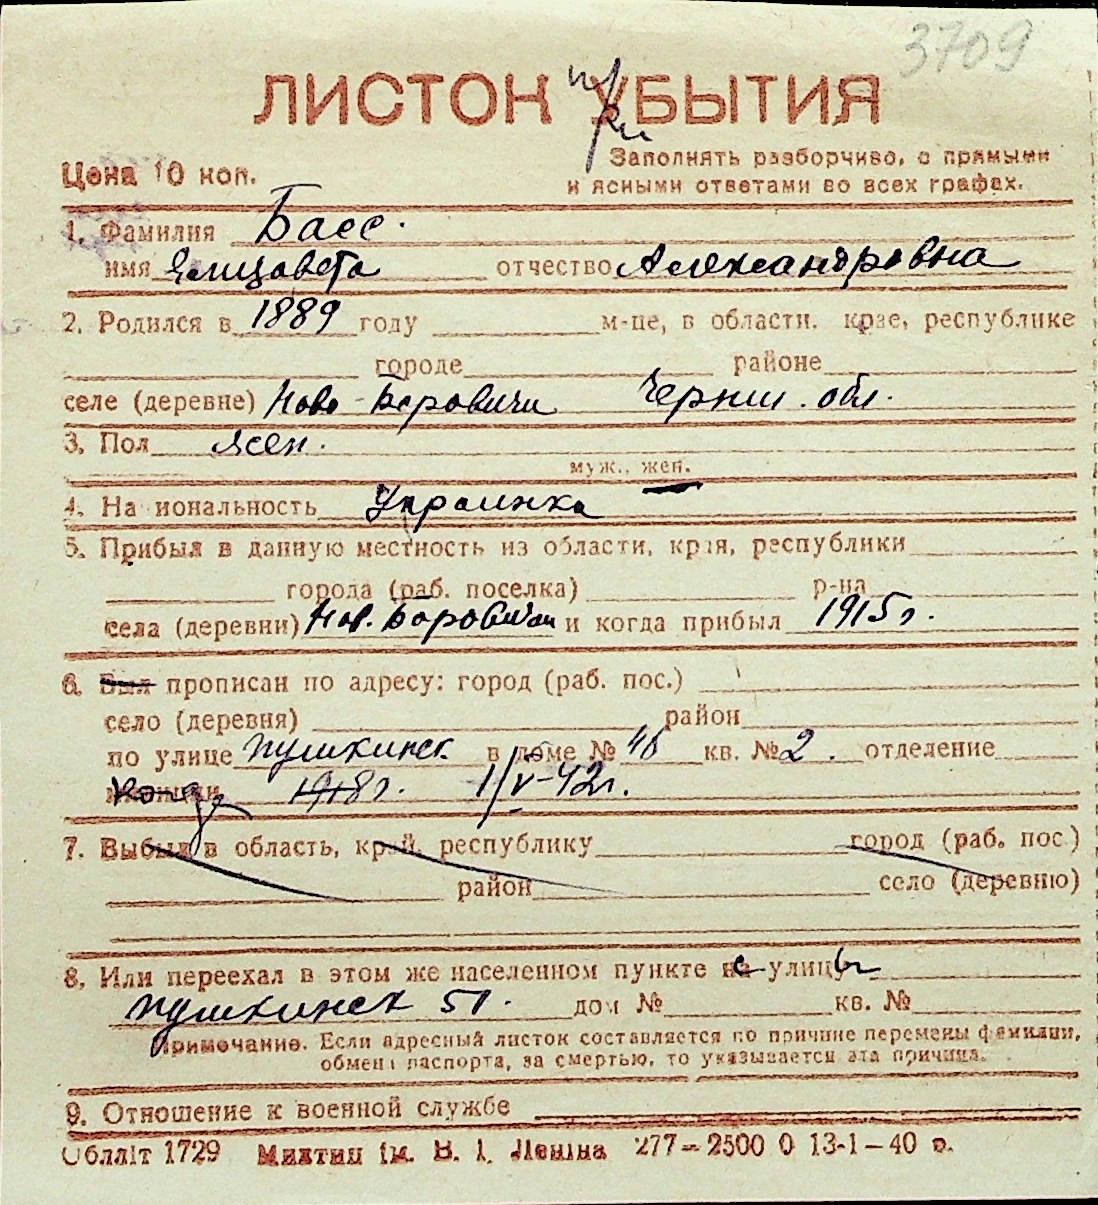 3709
ЛИСТОК УБЫТИЯ
при
Цена 10 коп.
Заполнять разборчиво, с прямыми
и ясными ответами во всех графах.
1. Фамилия Басс.
имя Елизавета отчество Александровна
2. Родился в 1889 году м-це, в области, крае, республике
городе районе
селе (деревне) Ново-Боровичи Черниг. обл.
3. Пол жен.
муж., жен.
4. На иональность Украинка
5. Прибыл в данную местность из области, края, республики
города (раб. поселка) р-на
села (деревни) Нов. Боровичи и когда прибыл 1915 г.
6. Был прописан по адресу: город (раб. пос.)
село (деревня) район
по улице Пушкинск. в доме № кв. № 2. отделение
милиции 1918 г. 1/V-42 г.
7. Выбыл в область, край, республику город (раб. пос.)
район село (деревню)
8. Или переехал в этом же населенном пункте с улицы
Пушкинск 51. дом № кв. №
Примечание. Если адресный листок составляется по причине перемены фамилии,
обмена паспорта, за смертью, то указывается эта причина.
9. Отношение к военной службе
Обlліт 1729 Миктип ім. В. І. Леніна 277–2500 0 13-1–40 в.